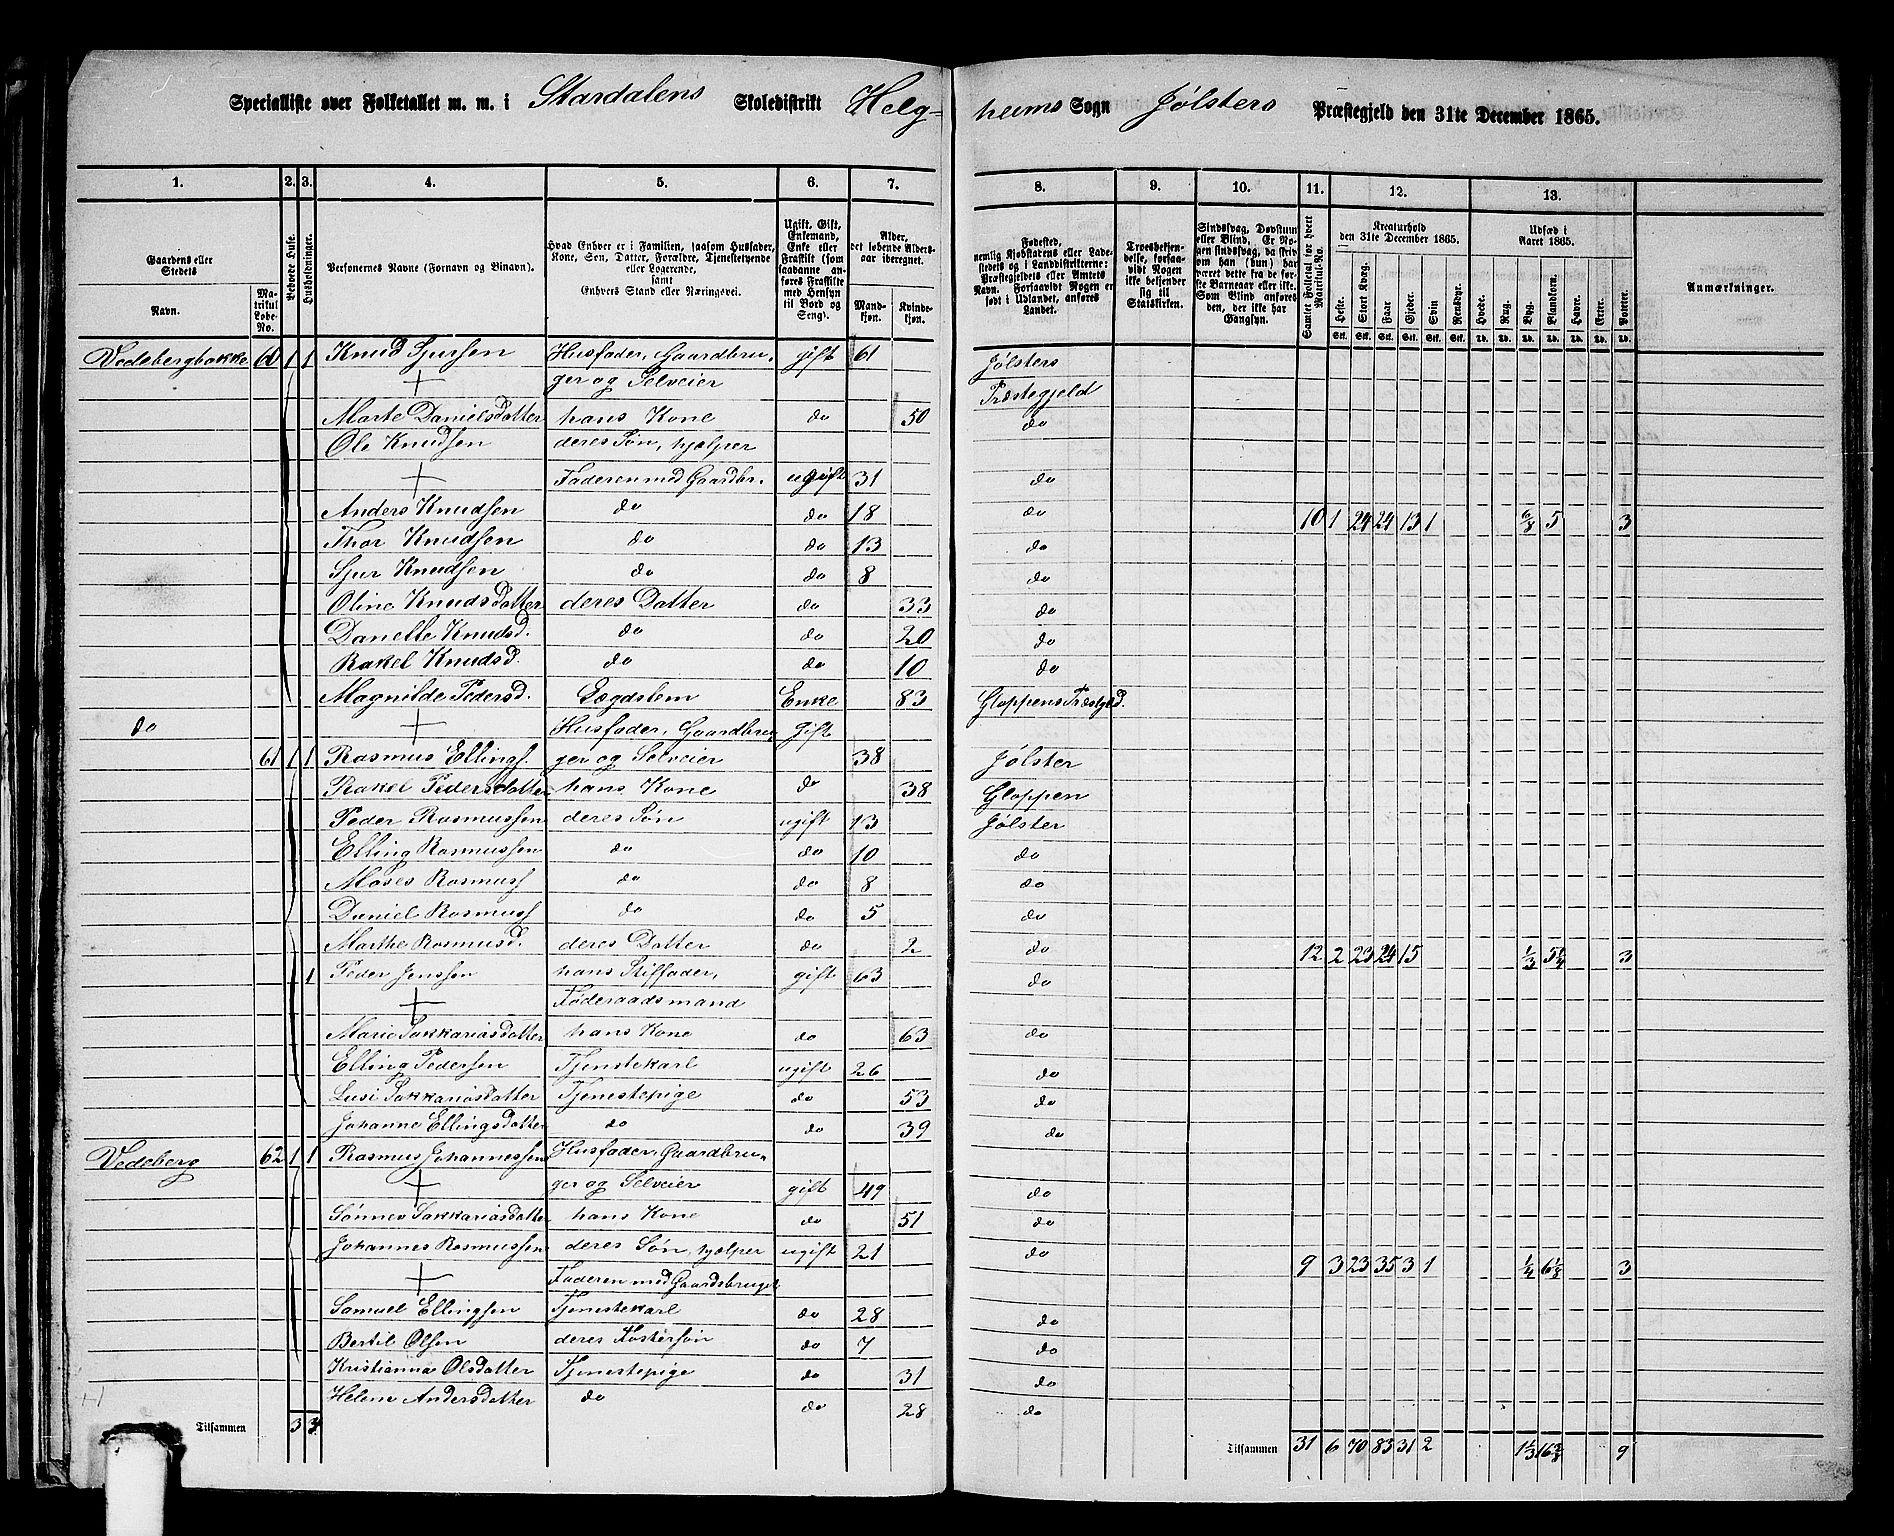 Specialliste over Folketallet m. m. i Stardalens Skoledistrikt Helg=heims Sogn Jølsters Præstegjeld den 31te December 1865.
1. 2. 3. 4. 5. 6. 7. 8. 9. 10. 11. 12. 13.
Gaardens eller Stedets
Navn. Matrikul Løbe-No.
Beboede Huse.
Husholdninger.
Personernes Navne (Fornavn og Tilnavn).
Hvad Enhver er i Familien, saasom Husfader, Kone, Søn, Datter, Forældre, Tjenestetyende eller Logerende, samt Enhvers Stand eller Næringsvei.
Ugift, Gift, Enkemand, Enke eller Fraskilt (som saadanne anføres Fraskilte med Hensyn til Bord og Seng).
Alder, det løbende Alders-aar iberegnet.
Mandkjøn. Kvindekjøn.
Fødested, nemlig Kjøbstadens eller Ladestedets og i Landdistrikterne: Præstegjeldets eller Amtets Navn. Forsaavidt Nogen er født i Udlandet, anføres Landet.
Troesbekjendelse, forsaavidt Nogen ikke bekjender sig til Statskirken.
Sindssvag, Døvstum eller Blind. Er Nogen sindssvag, da skrives om han (hun) har været dette fra de første Barneaar eller ikke. Som Blind anføres den, der ikke har Gangsyn.
Samlet Folketal for hvert Matrikul-No.
Kreaturhold den 31te December 1865.
Heste. Stort Kvæg. Faar. Gjeder. Svin. Rensdyr.
Udsæd i Aaret 1865.
Hvede. Rug. Byg. Blandkorn. Havre. Erter. Poteter.
Anmærkninger.
Stk. Stk. Stk. Stk. Stk. Stk. Td. Td. Td. Td. Td. Td. Td.
Vedebergbakke 60 1 1 Knud Sjursen Husfader, Gaardbru- gift 61 Jølsters
+ ger og Selveier Præstegjeld
Marte Danielsdatter hans Kone do 50 do
Ole Knudsen deres Søn, hjælper
+ Faderen med Gaardbr. ugift 31 do
Anders Knudsen do do 18 do 10 1 24 24 13 1 6/8 5 3
Thor Knudsen do do 13 do
Sjur Knudsen do do 8 do
Oline Knudsdatter deres Datter do 33 do
Danette Knudsd. do do 20 do
Rakel Knudsd. do do 10 do
Magnilde Pedersd. Lægdslem Enke 83 Gloppens Præstgjd.
do + Husfader, Gaardbru Gift
61 1 1 Rasmus Ellings. ger og Selveier 38 Jølster
Rakel Pedersdatter hans Kone do 38 Gloppen
Peder Rasmussen deres Søn ugift 13 Jølster
Elling Rasmussen do do 10 do
Moses Rasmuss do do 8 do
Daniel Rasmuss do do 5 do
Marthe Rasmusd. deres Datter do 2 do 12 2 23 24 15 1/3 5 1/4 3
1 Peder Jenssen hans Stiffader, gift 63 do
+ Føderaadsmand
Marie Sakkariasdatter hans Kone do 63 do
Elling Pedersen Tjenstekarl ugift 26 do
Lusi Sakkariasdatter Tjenestepige do 53 do
Johanne Ellingsdatter do do 39 do
Vedeberg 62 1 1 Rasmus Johannessen Husfader, Gaardbru-
+ ger og Selveier gift 49 do
Sønnev Sakkariasdatter hans Kone do 51 do
Johannes Rasmussen deres Søn, hjælper ugift 21 do
+ Faderen med Gaardsbruget 9 3 23 35 3 1 1/4 6 1/8 3
Samuel Ellingsen Tjenstekarl do 28 do
Bertil Olsen deres Fostersøn do 7 do
Kristianna Olsdatter Tjenestepige do 31 do
Helene Andersdatter do do 28 do
Tilsammen 3 Tilsammen 31 6 70 83 31 2 1 1/3 16 3/8 9